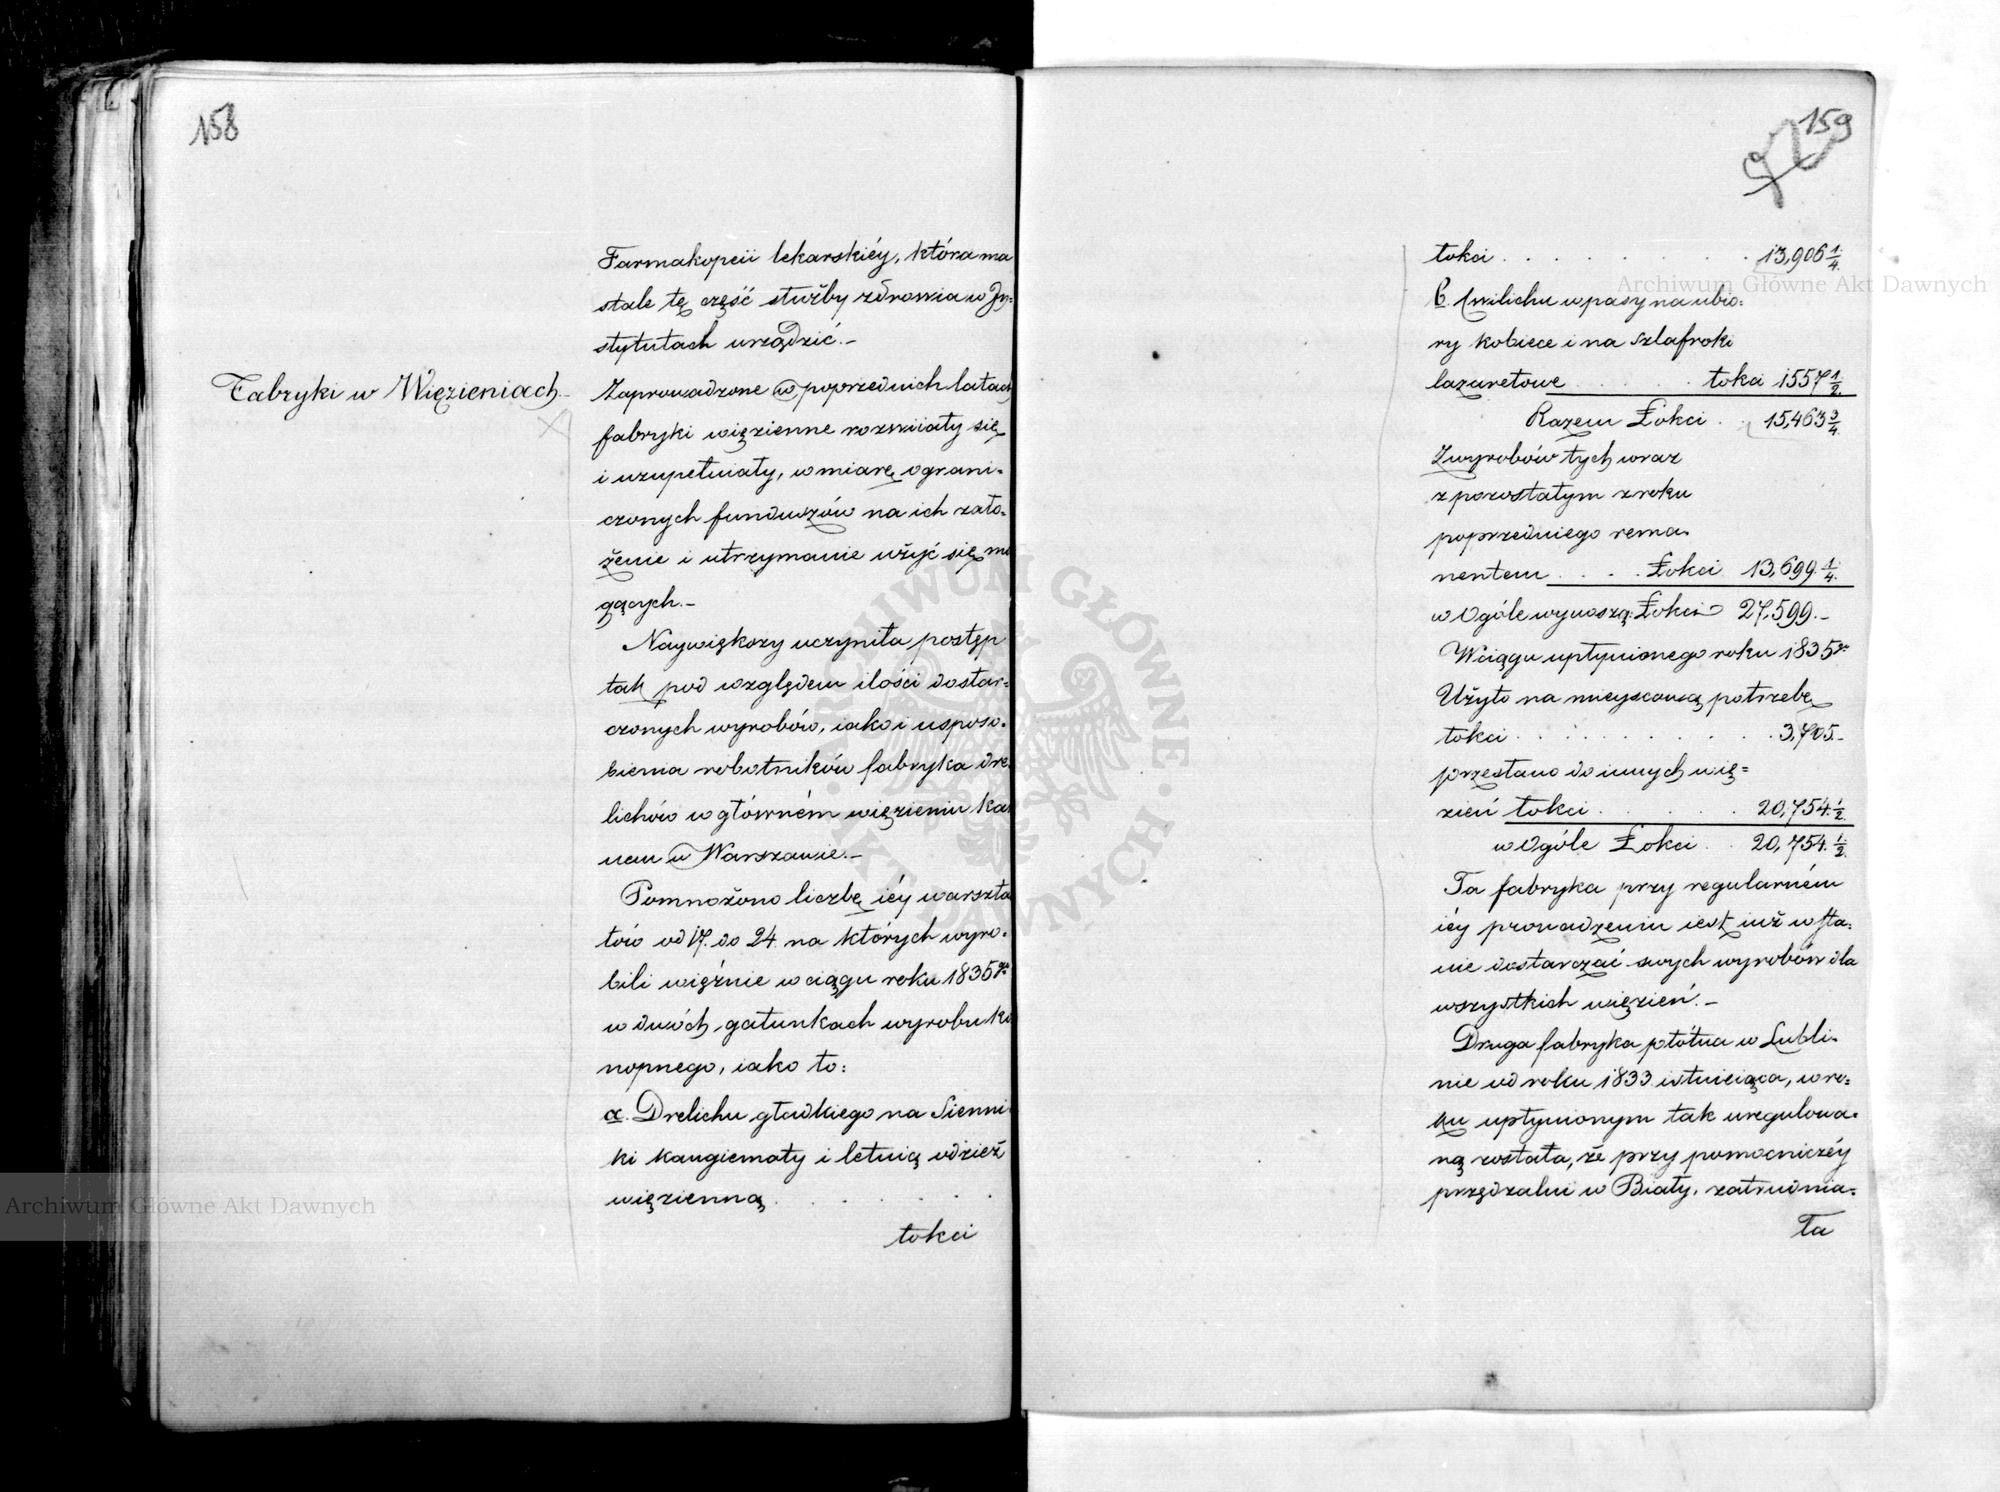 158
Farmakopeii lekarskiéy, która ma
stale tę część służby zdrowia w Jn=
stytutach urządzić.-
Fabryki w Więzieniach.-
Zaprowadzone w poprzednich latach
fabryki więzienne rozwiiały się
i uzupełniały, w miarę ograni=
czonych funduszów na ich zało=
żenie i utrzymanie użyć się mo
gących.-
Naywiększy uczyniła postęp
tak pod względem ilości dostar=
czonych wyrobów, iako i usposo=
bienia robotników fabryka dre
lichów w główném więzieniu kar
nem w Warszawie.-
Pomnożono liczbę iéy warszta
tów od 17. do 24 na których wyro=
bili więźnie w ciągu roku 1835go
w dwóch gatunkach wyrobu ko
nopnego, iako to:
a. Drelichu gładkiego na Sienni
ki kangiemoty i letnią odzież
więzienną . . . . . .
łokci
159
łokci . . . . . . . . 13,906 1/4.
b. Cwilichu w pasy na ubio=
ry kobiece i na szlafroki
lazaretowe . . . . . łokci 1557 1/2.
Razem Łokci . . 15,463 3/4.
Z wyrobów tych wraz
z pozostałym z roku
poprzedniego rema=
nentem . . . . Łokci 13,699. 1/4.
w Ogóle wynoszą: Łokci 27,599.-
W ciągu upłynionego roku 1835go
Użyto na mieyscową potrzebę
łokci . . . . . . . . . 3,705.-
przesłano do innych wię=
zień łokci . . . . . 20,754. 1/2.
w Ogóle Łokci . . 20,754. 1/2.
Ta fabryka przy regularném
iéy prowadzeniu iest iuż w sta=
nie dostarczać swych wyrobów dla
wszystkich więzień.-
Druga fabryka płótna w Lubli=
nie od roku 1833 istnieiąca, w ro=
ku upłynionym tak uregulowa=
ną została, że przy pomocniczéy
przędzalni w Biały, zatrudnia=
Ta
Archiwum Główne Akt Dawnych
Archiwum Główne Akt Dawnych
ARCHIWUM GŁÓWNE AKT DAWNYCH